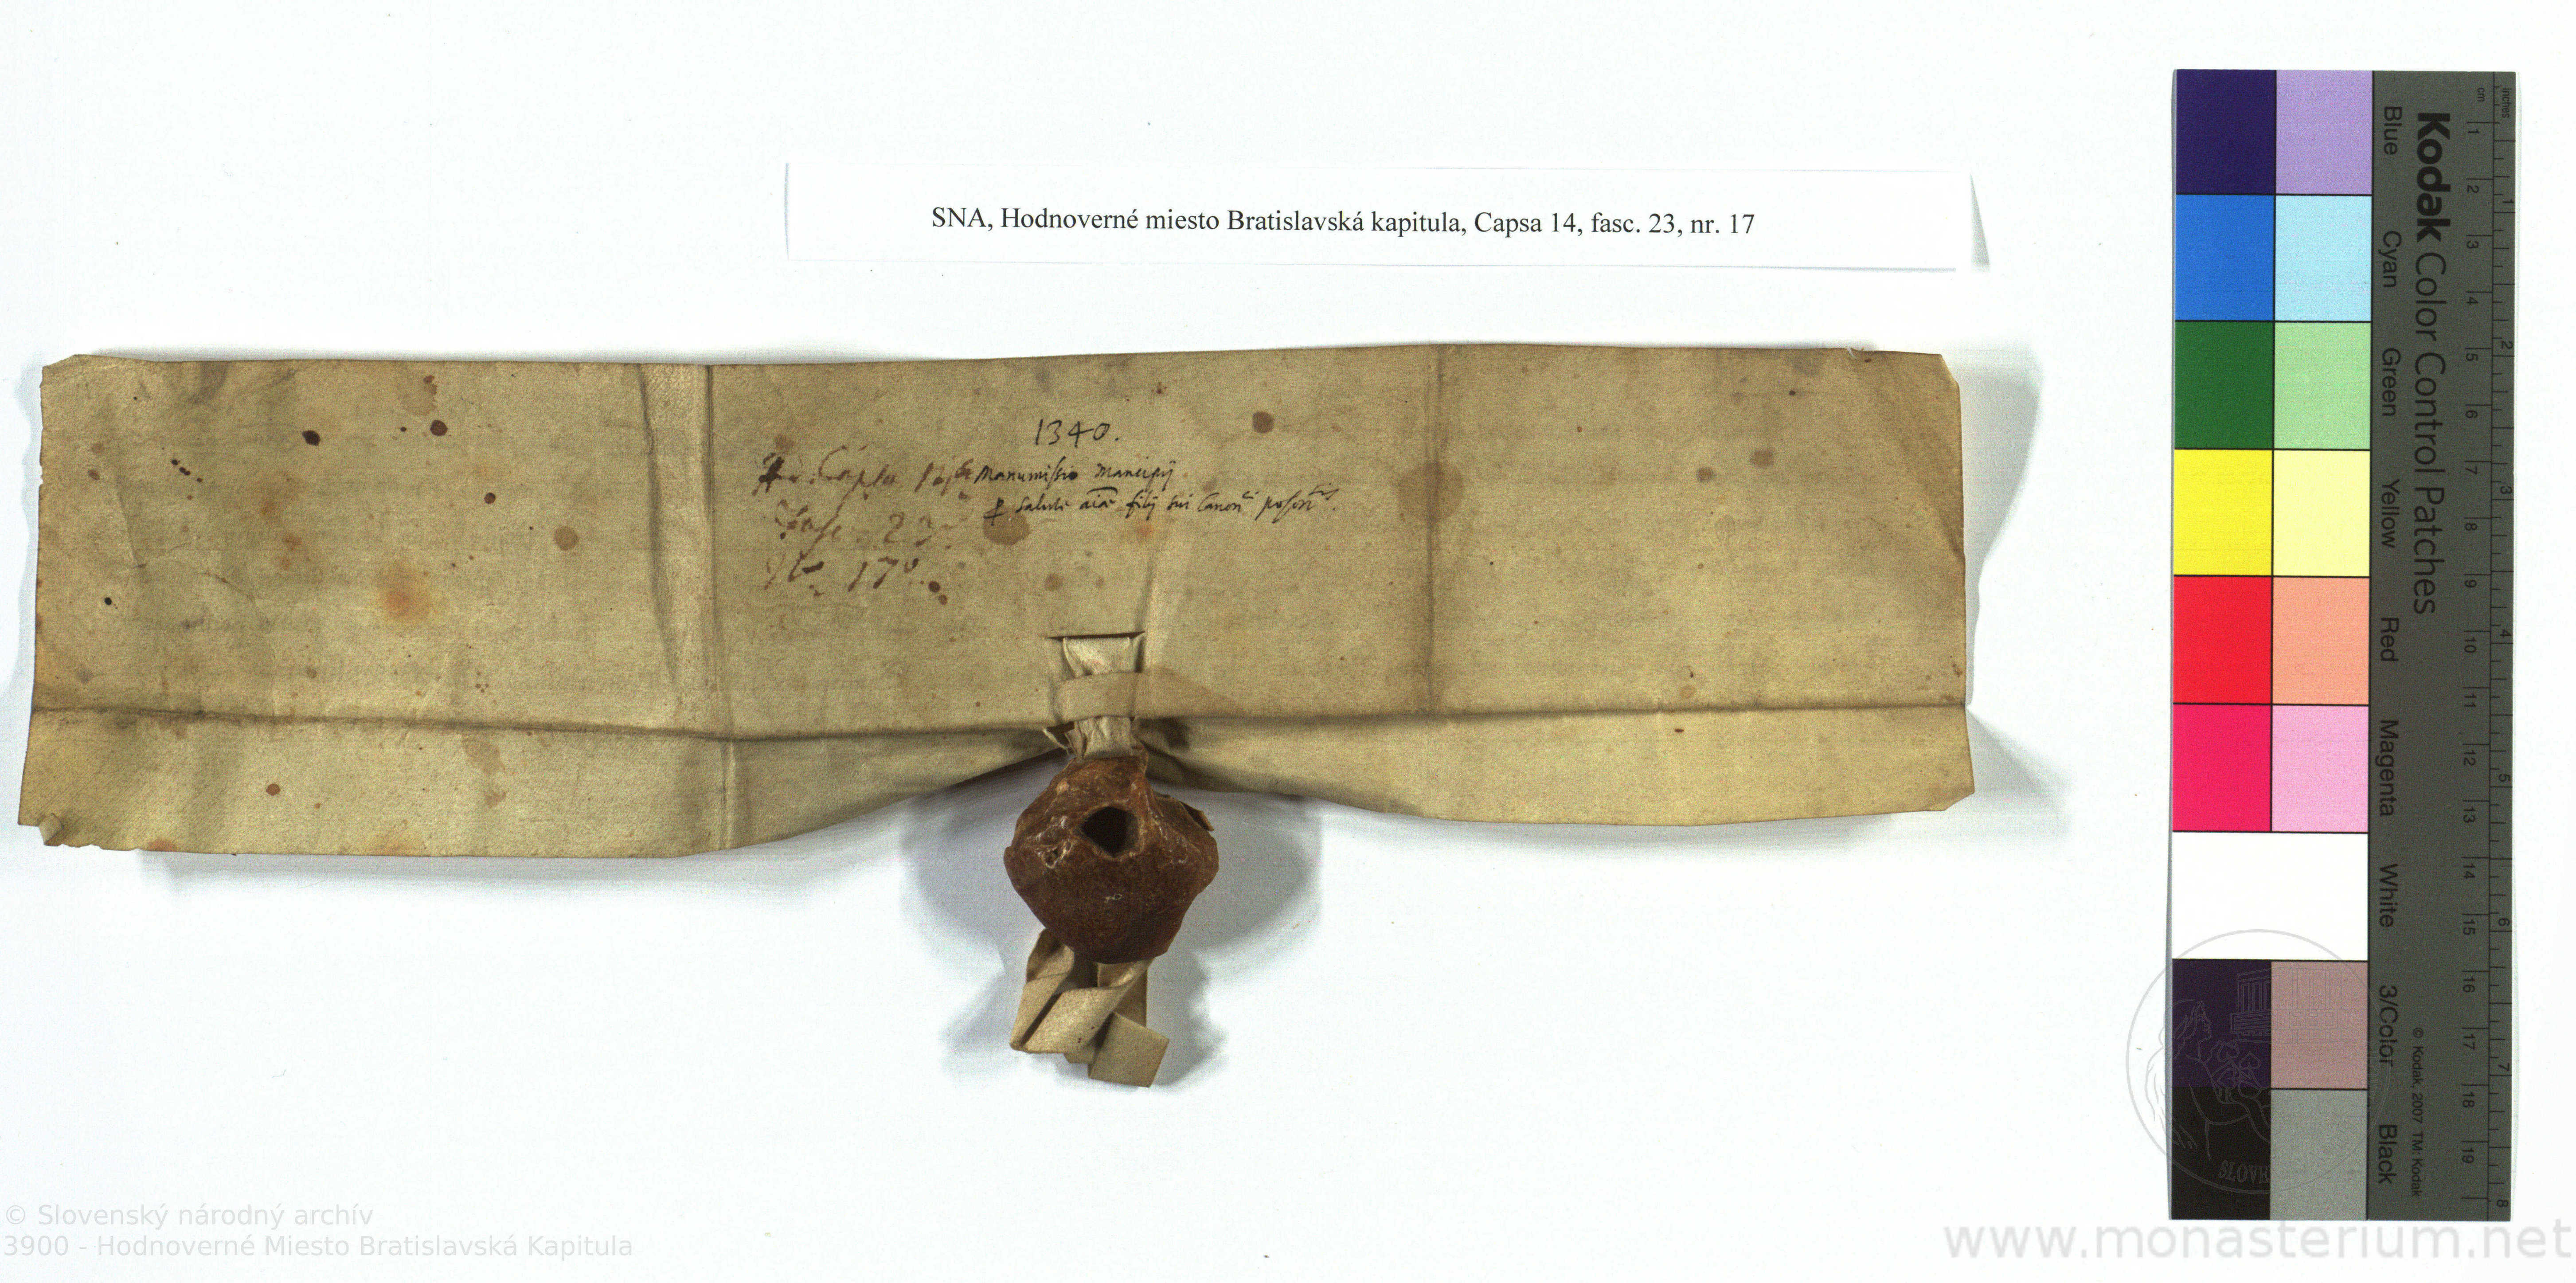 SNA, Hodnoverné miesto Bratislavská kapitula, Capsa 14, fasc. 23, nr. 17
1340.
Manumissio Mancipij
Capsa
ꝑ salute aīae filij sui Canonci posoncis.
Fasc. 23
No 17
Kodak Color Control Patches
Blue Cyan Green Yellow Red Magenta White 3/Color Black
inches 1 2 3 4 5 6 7 8
cm 1 2 3 4 5 6 7 8 9 10 11 12 13 14 15 16 17 18 19
© Kodak, 2007 TM: Kodak
SLOVE
© Slovenský národný archív
3900 - Hodnoverné Miesto Bratislavská Kapitula
www.monasterium.net